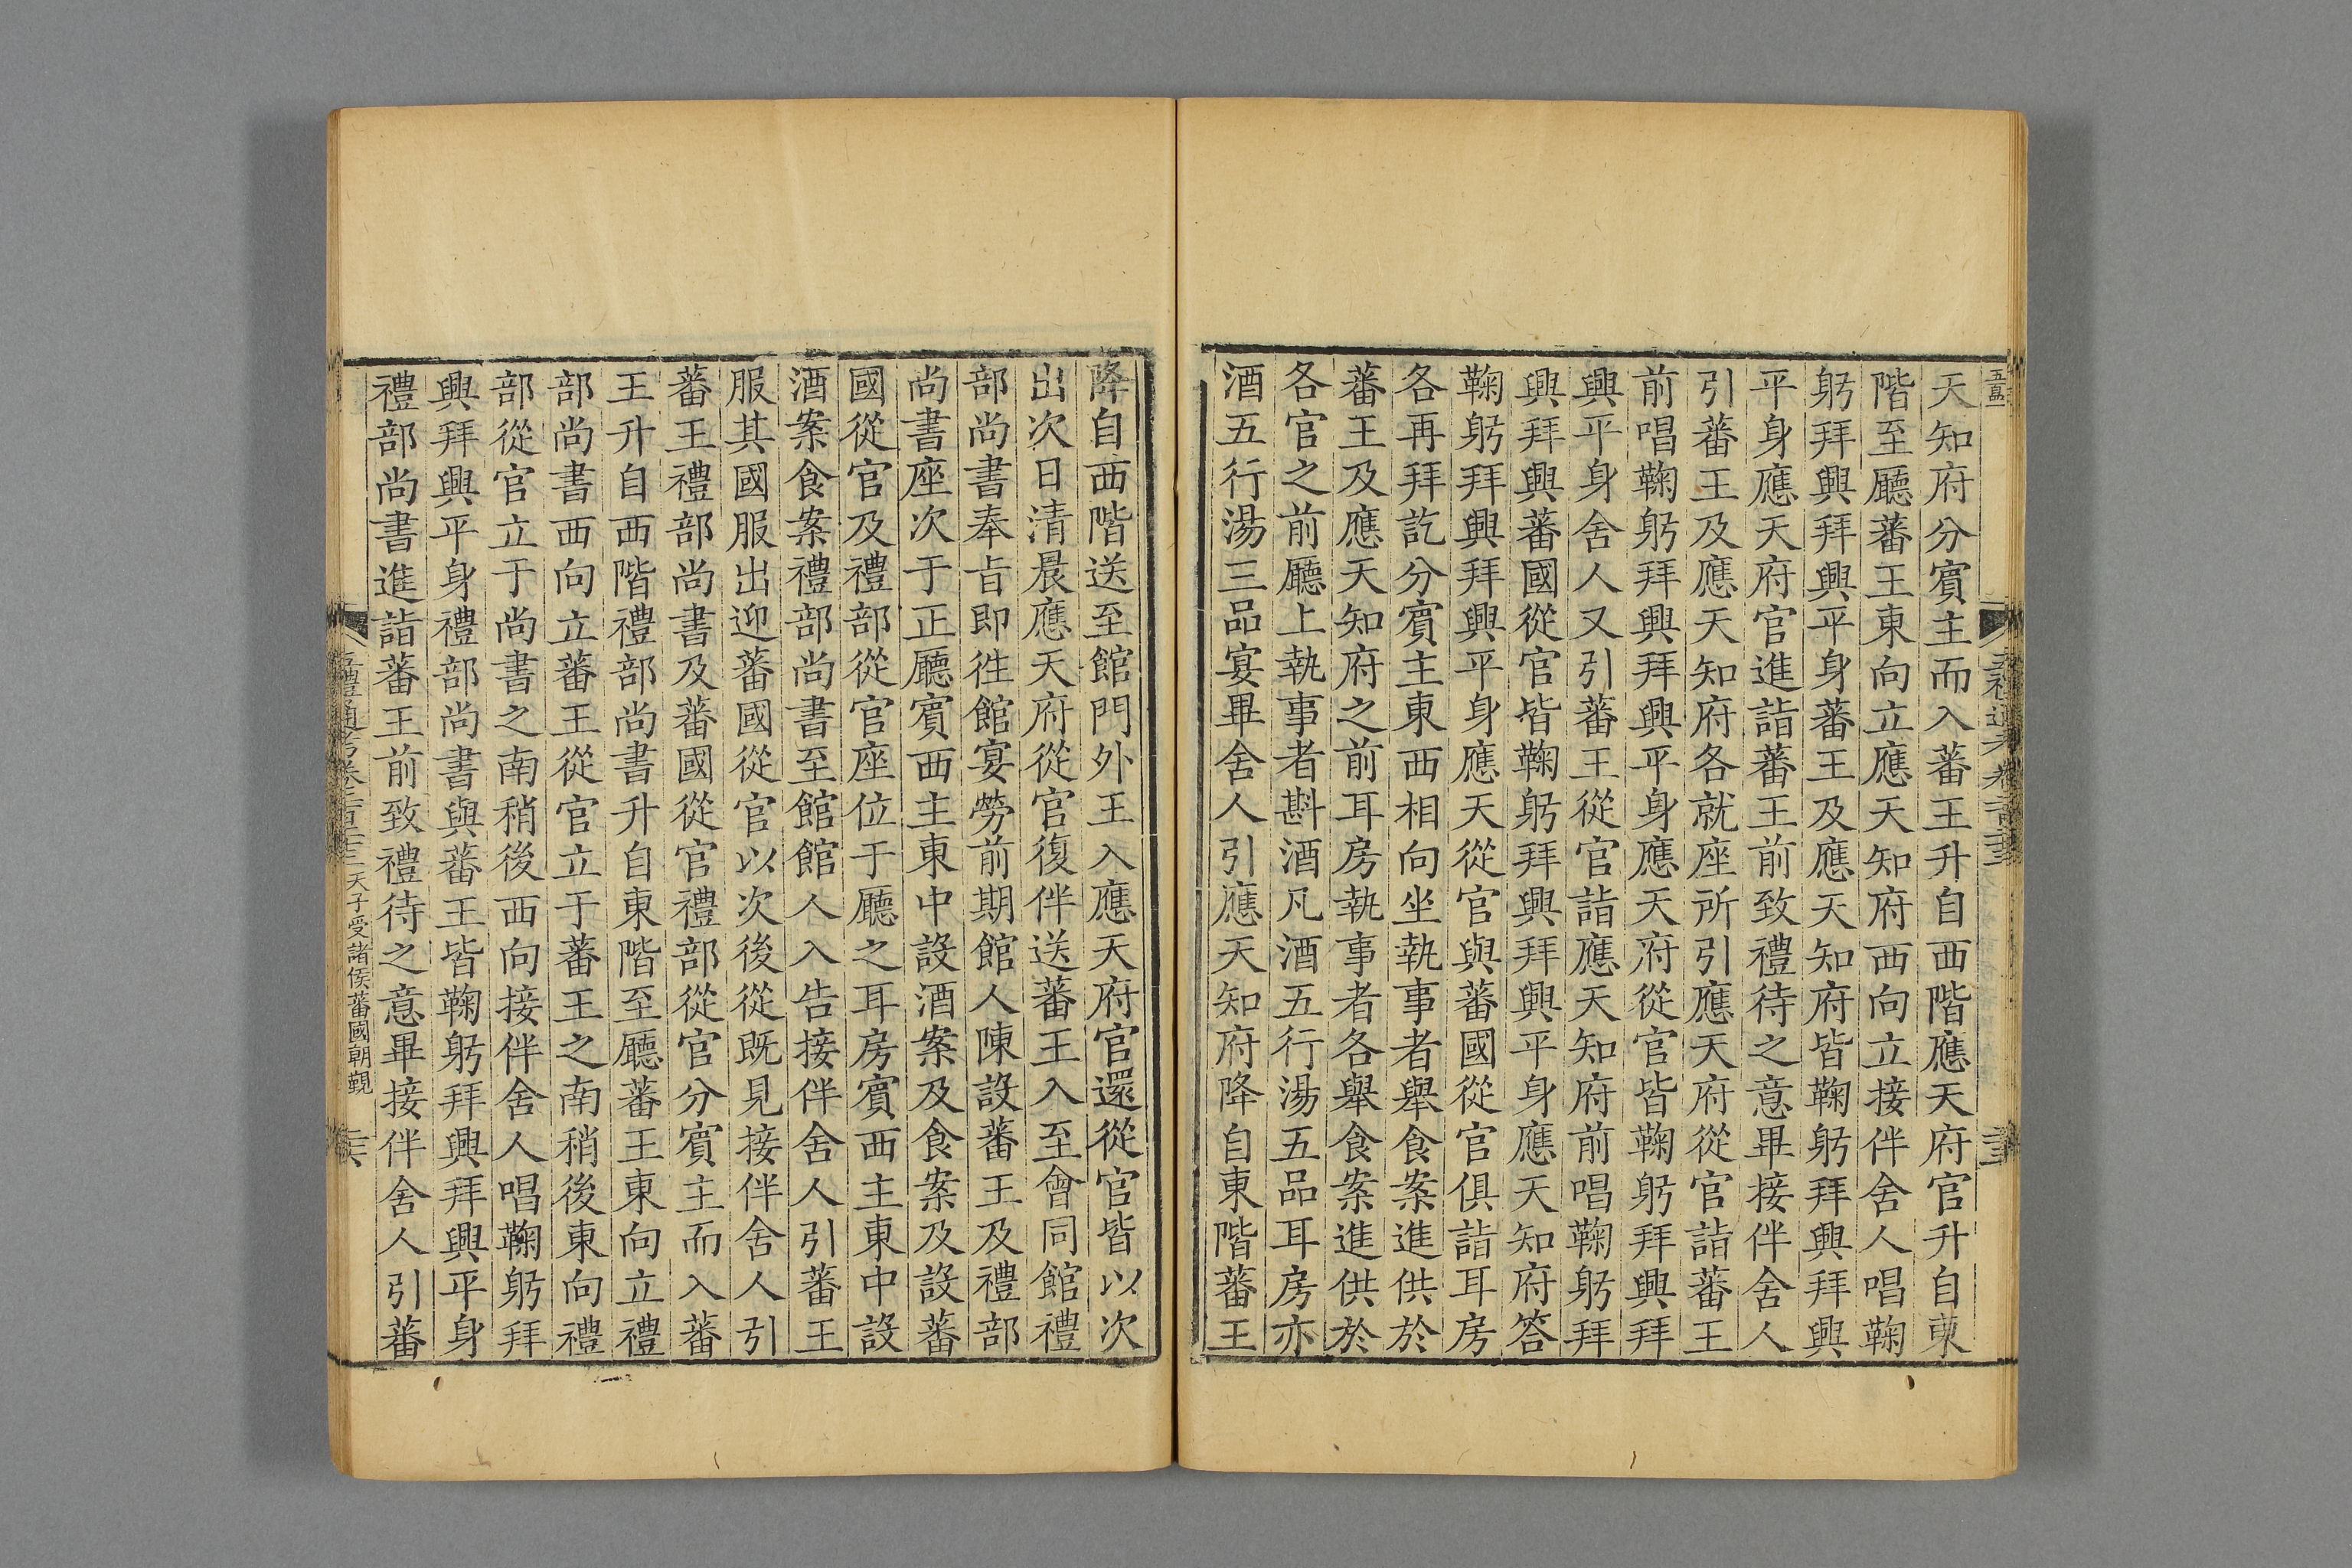 天知府分賓主而入蕃王升自西階應天府官升自東
階至廳蕃王東向立應天知府西向立接伴舍人唱鞠
躬拜興拜興平身蕃王及應天知府皆鞠躬拜興拜興
平身應天府官進詣蕃王前致禮待之意畢接伴舍人
引蕃王及應天知府各就座所引應天府從官詣蕃王
前唱鞠躬拜興拜興平身應天府從官皆鞠躬拜興拜
興平身舍人又引蕃王從官詣應天知府前唱鞠躬拜
興拜興蕃國從官皆鞠躬拜興拜興平身應天知府答
鞠躬拜興拜興平身應天從官與蕃國從官俱詣耳房
各再拜訖分賓主東西相向坐執事者舉食案進供於
蕃王及應天知府之前耳房執事者各舉食案進供於
各官之前廳上執事者斟酒凡酒五行湯五品耳房亦
酒五行湯三品宴畢舍人引應天知府降自東階蕃王
降自西階送至館門外王入應天府官還從官皆以次
出次日清晨應天府從官復伴送蕃王入至會同館禮
部尚書奉旨即徃館宴勞前期館人陳設蕃王及禮部
尚書座次于正廳賓西主東中設酒案及食案及設蕃
國從官及禮部從官座位于廳之耳房賓西主東中設
酒案食案禮部尚書至館館人入告接伴舍人引蕃王
服其國服出迎蕃國從官以次後從既見接伴舍人引
蕃王禮部尚書及蕃國從官禮部從官分賓主而入蕃
王升自西階禮部尚書升自東階至廳蕃王東向立禮
部尚書西向立蕃王從官立于蕃王之南稍後東向禮
部從官立于尚書之南稍後西向接伴舍人唱鞠躬拜
興拜興平身禮部尚書與蕃王皆鞠躬拜興拜興平身
禮部尚書進詣蕃王前致禮待之意畢接伴舍人引蕃
天子受諸侯蕃國朝覲